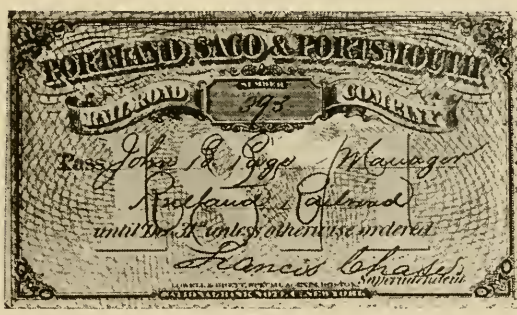 PORTLAND, SACO & PORTSMOUTH
RAILROAD NUMBER COMPANY
393
Pass John B. Page Manager
Rutland Railroad
until Dec. 31st unless otherwise ordered
1871
Francis Chase
Superintendent
NATIONAL BANK NOTE CO. NEW YORK